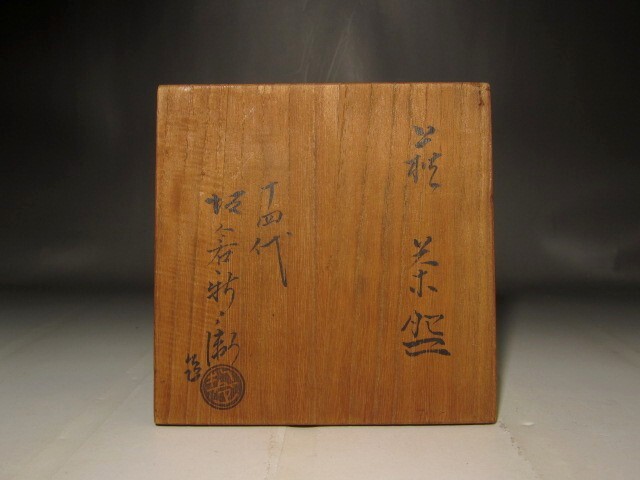 萩 茶盌
十四代
坂倉新兵衛
造